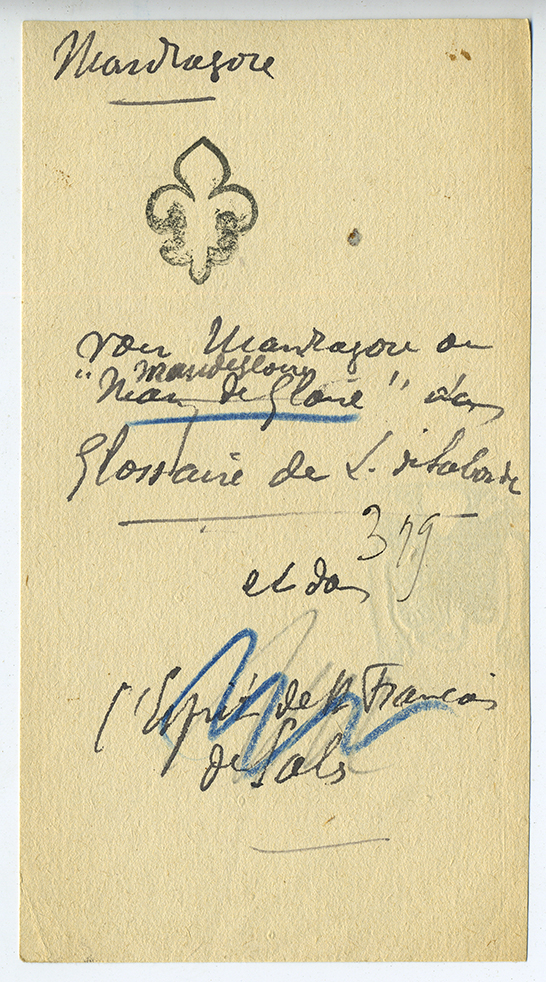 Mandragore
voir Mandragore ou
Mandegloire
"Main de Gloire" dans
Glossaire de L. de Laborde
379
et dans
l'Esprit de St François
de Sales